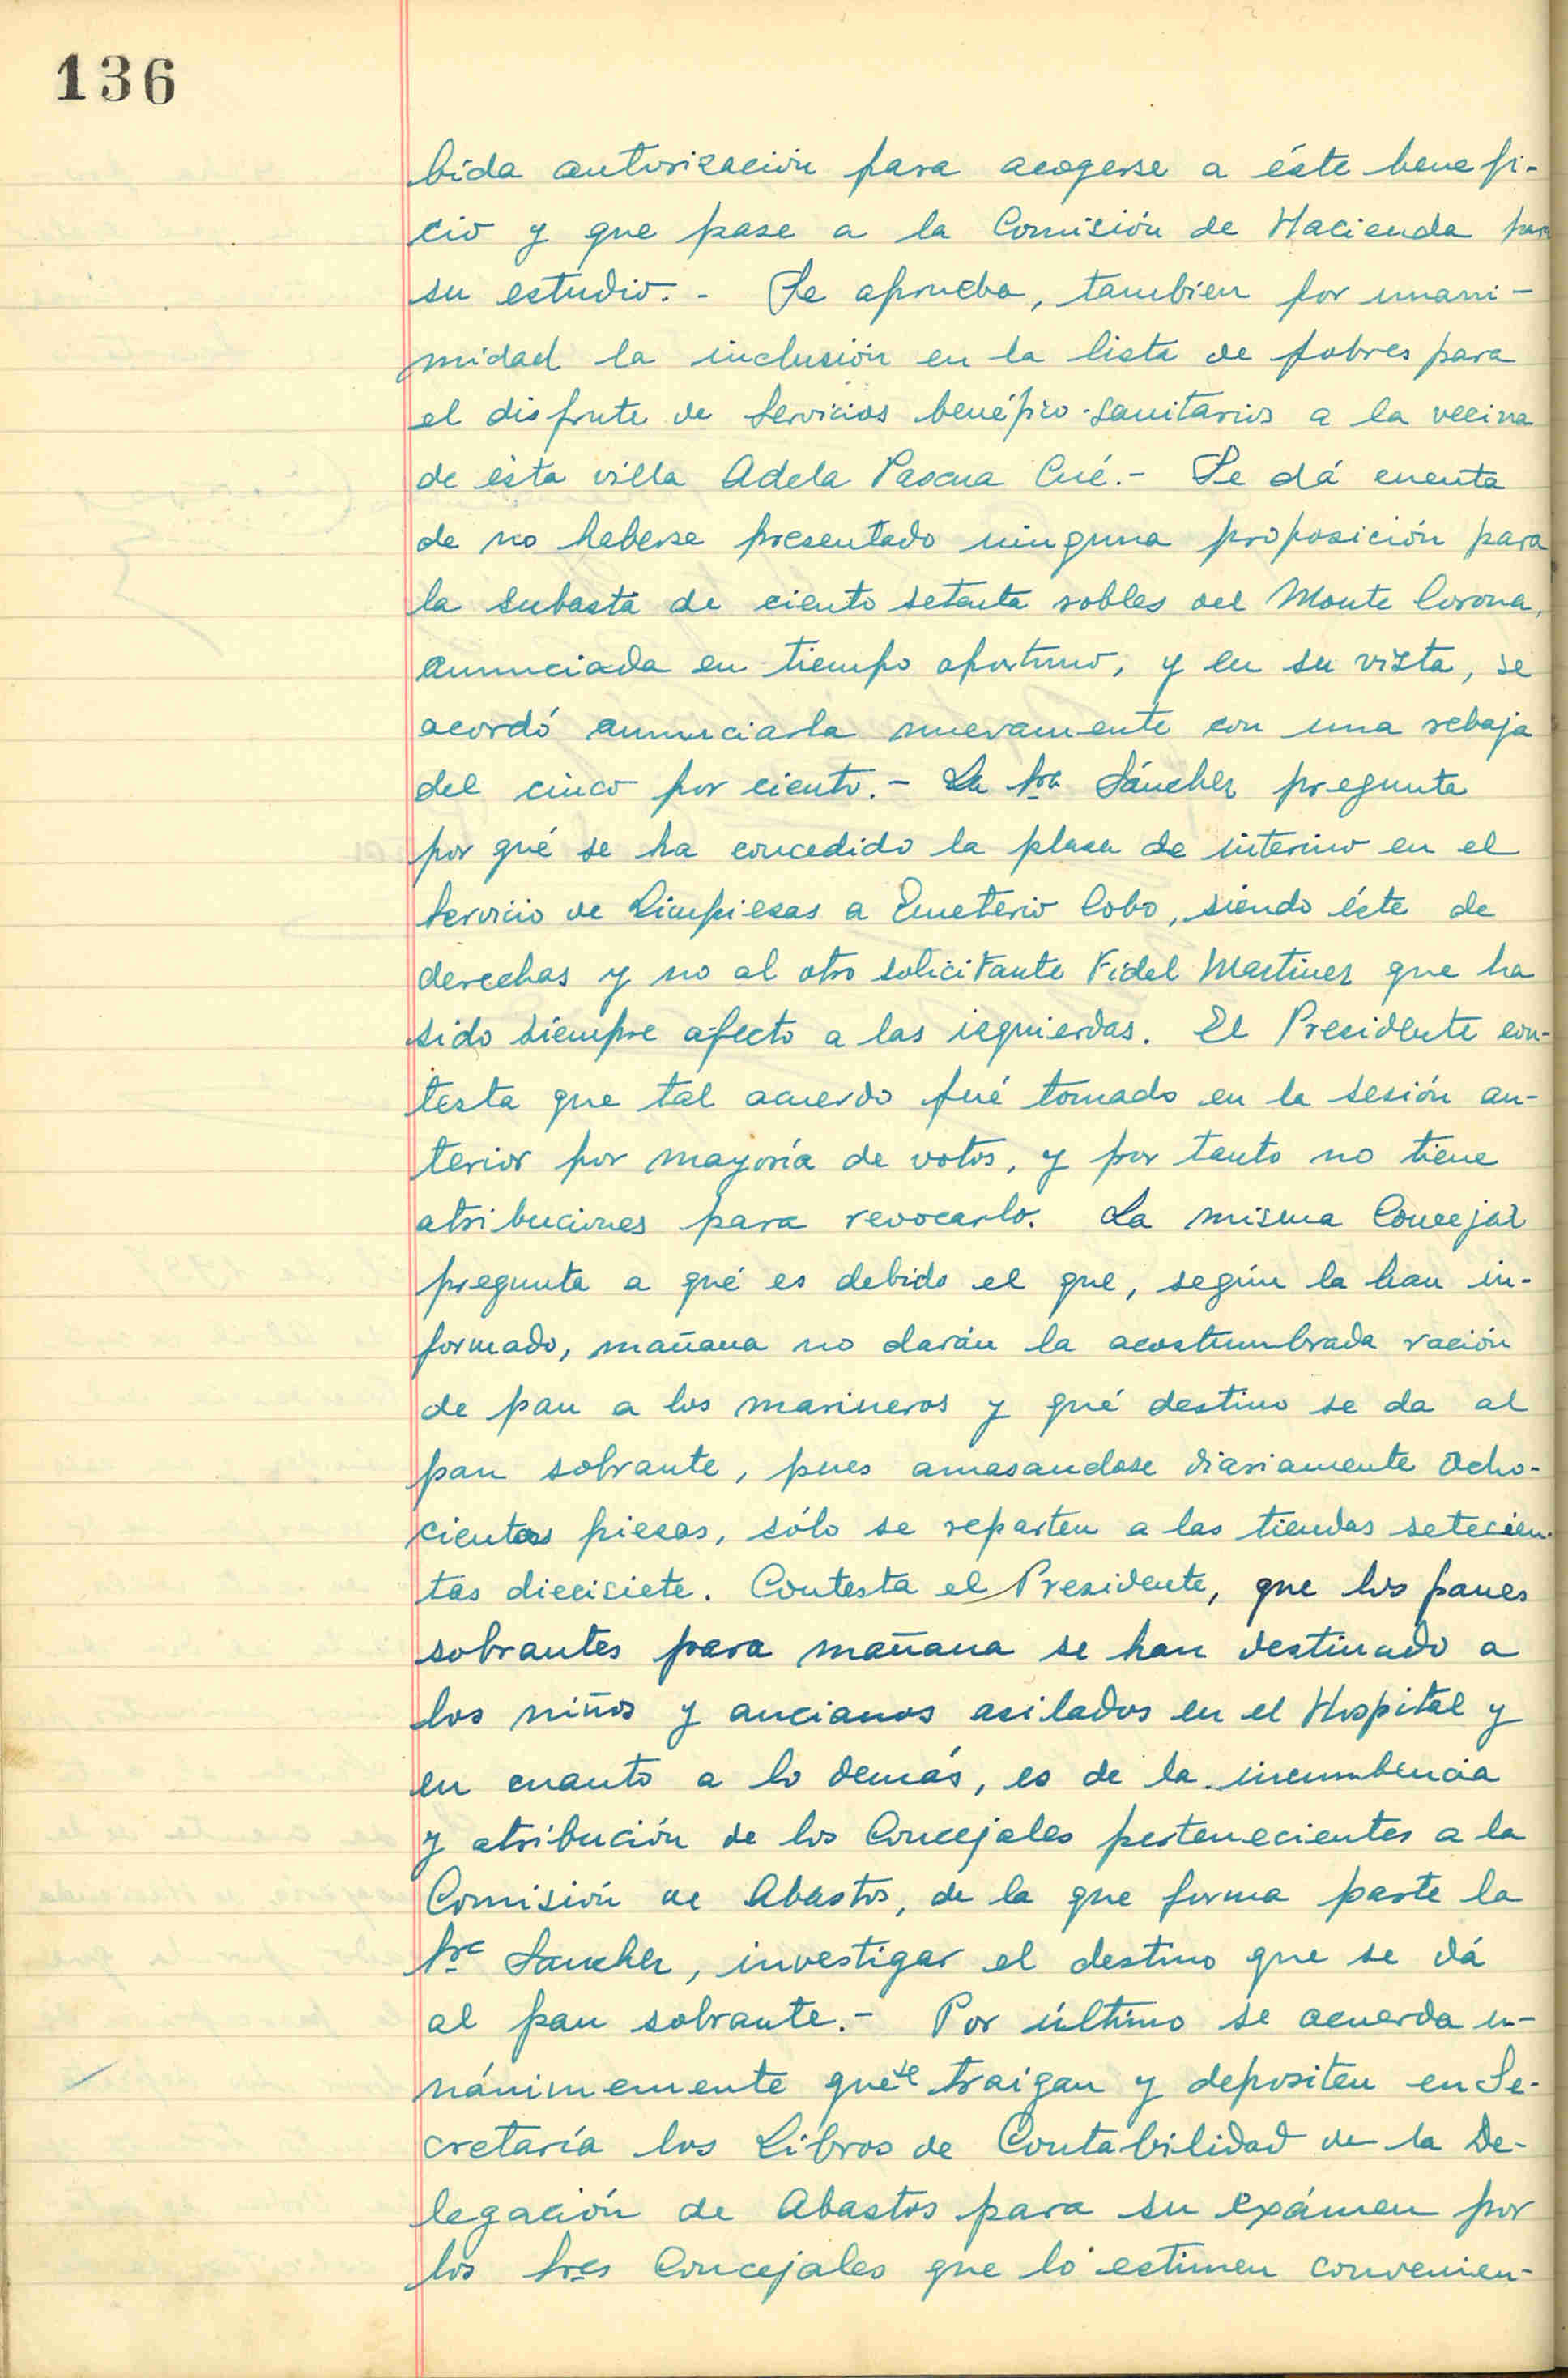 136
bida autorización para acogerse a éste benefi-
cio y que pase a la Comisión de Hacienda para
su estudio. - Se aprueba, tambien por unani-
midad la inclusión en la lista de pobres para
el disfrute de servicios benéfico-sanitarios a la vecina
de ésta villa Adela Pascua Cué.- Se dá cuenta
de no haberse presentado ninguna proposición para
la subasta de ciento setenta robles del Monte Corona,
anunciada en tiempo oportuno, y en su vista, se
acordó anunciarla nuevamente con una rebaja
del cinco por ciento.- La Sra Sánchez pregunta
por qué se ha concedido la plaza de interino en el
servicio de Limpiezas a Emeterio Cobo, siendo éste de
derechas y no al otro solicitante Fidel Martinez que ha
sido siempre afecto a las izquierdas. El Presidente con-
testa que tal acuerdo fué tomado en la sesión an-
terior por mayoría de votos, y por tanto no tiene
atribuciones para revocarlo. La misma Concejal
pregunta a qué es debido el que, según la han in-
formado, mañana no darán la acostumbrada ración
de pan a los marineros y qué destino se da al
pan sobrante, pues amasandose diariamente ocho-
cientas piezas, sólo se reparten a las tiendas setecien-
tas diecisiete. Contesta el Presidente, que los panes
sobrantes para mañana se han destinado a
los niños y ancianos asilados en el Hospital y
en cuanto a lo demás, es de la incumbencia
y atribución de los Concejales pertenecientes a la
Comisión de Abastos, de la que forma parte la
Sra Sanchez, investigar el destino que se dá
al pan sobrante.- Por último se acuerda u-
nánimemente que se traigan y depositen en Se-
cretaría los Libros de Contabilidad de la De-
legación de Abastos para su exámen por
los Sres Concejales que lo estimen convenien-